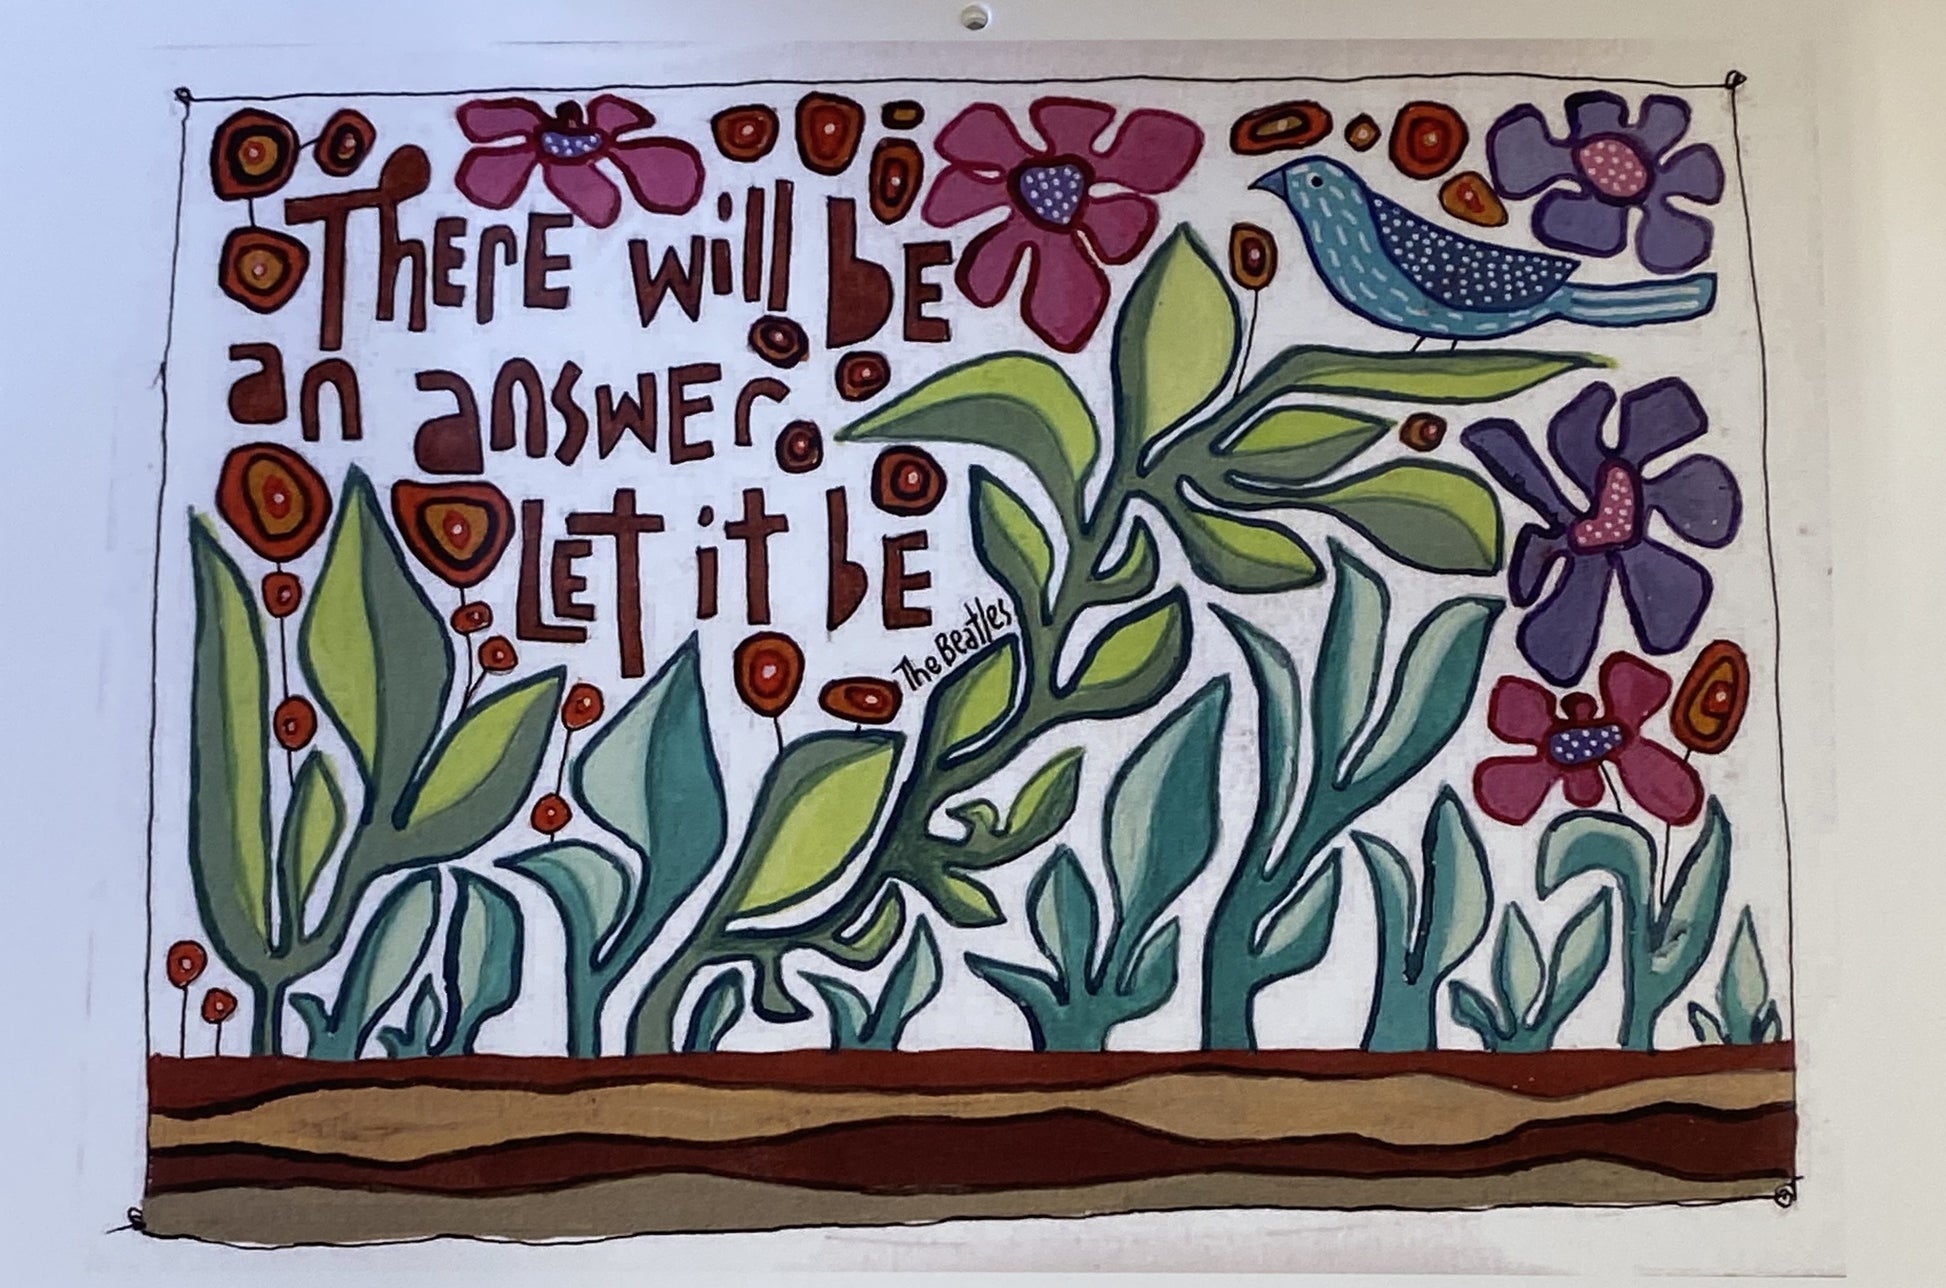 There will be
an answer
Let it be
The Beatles